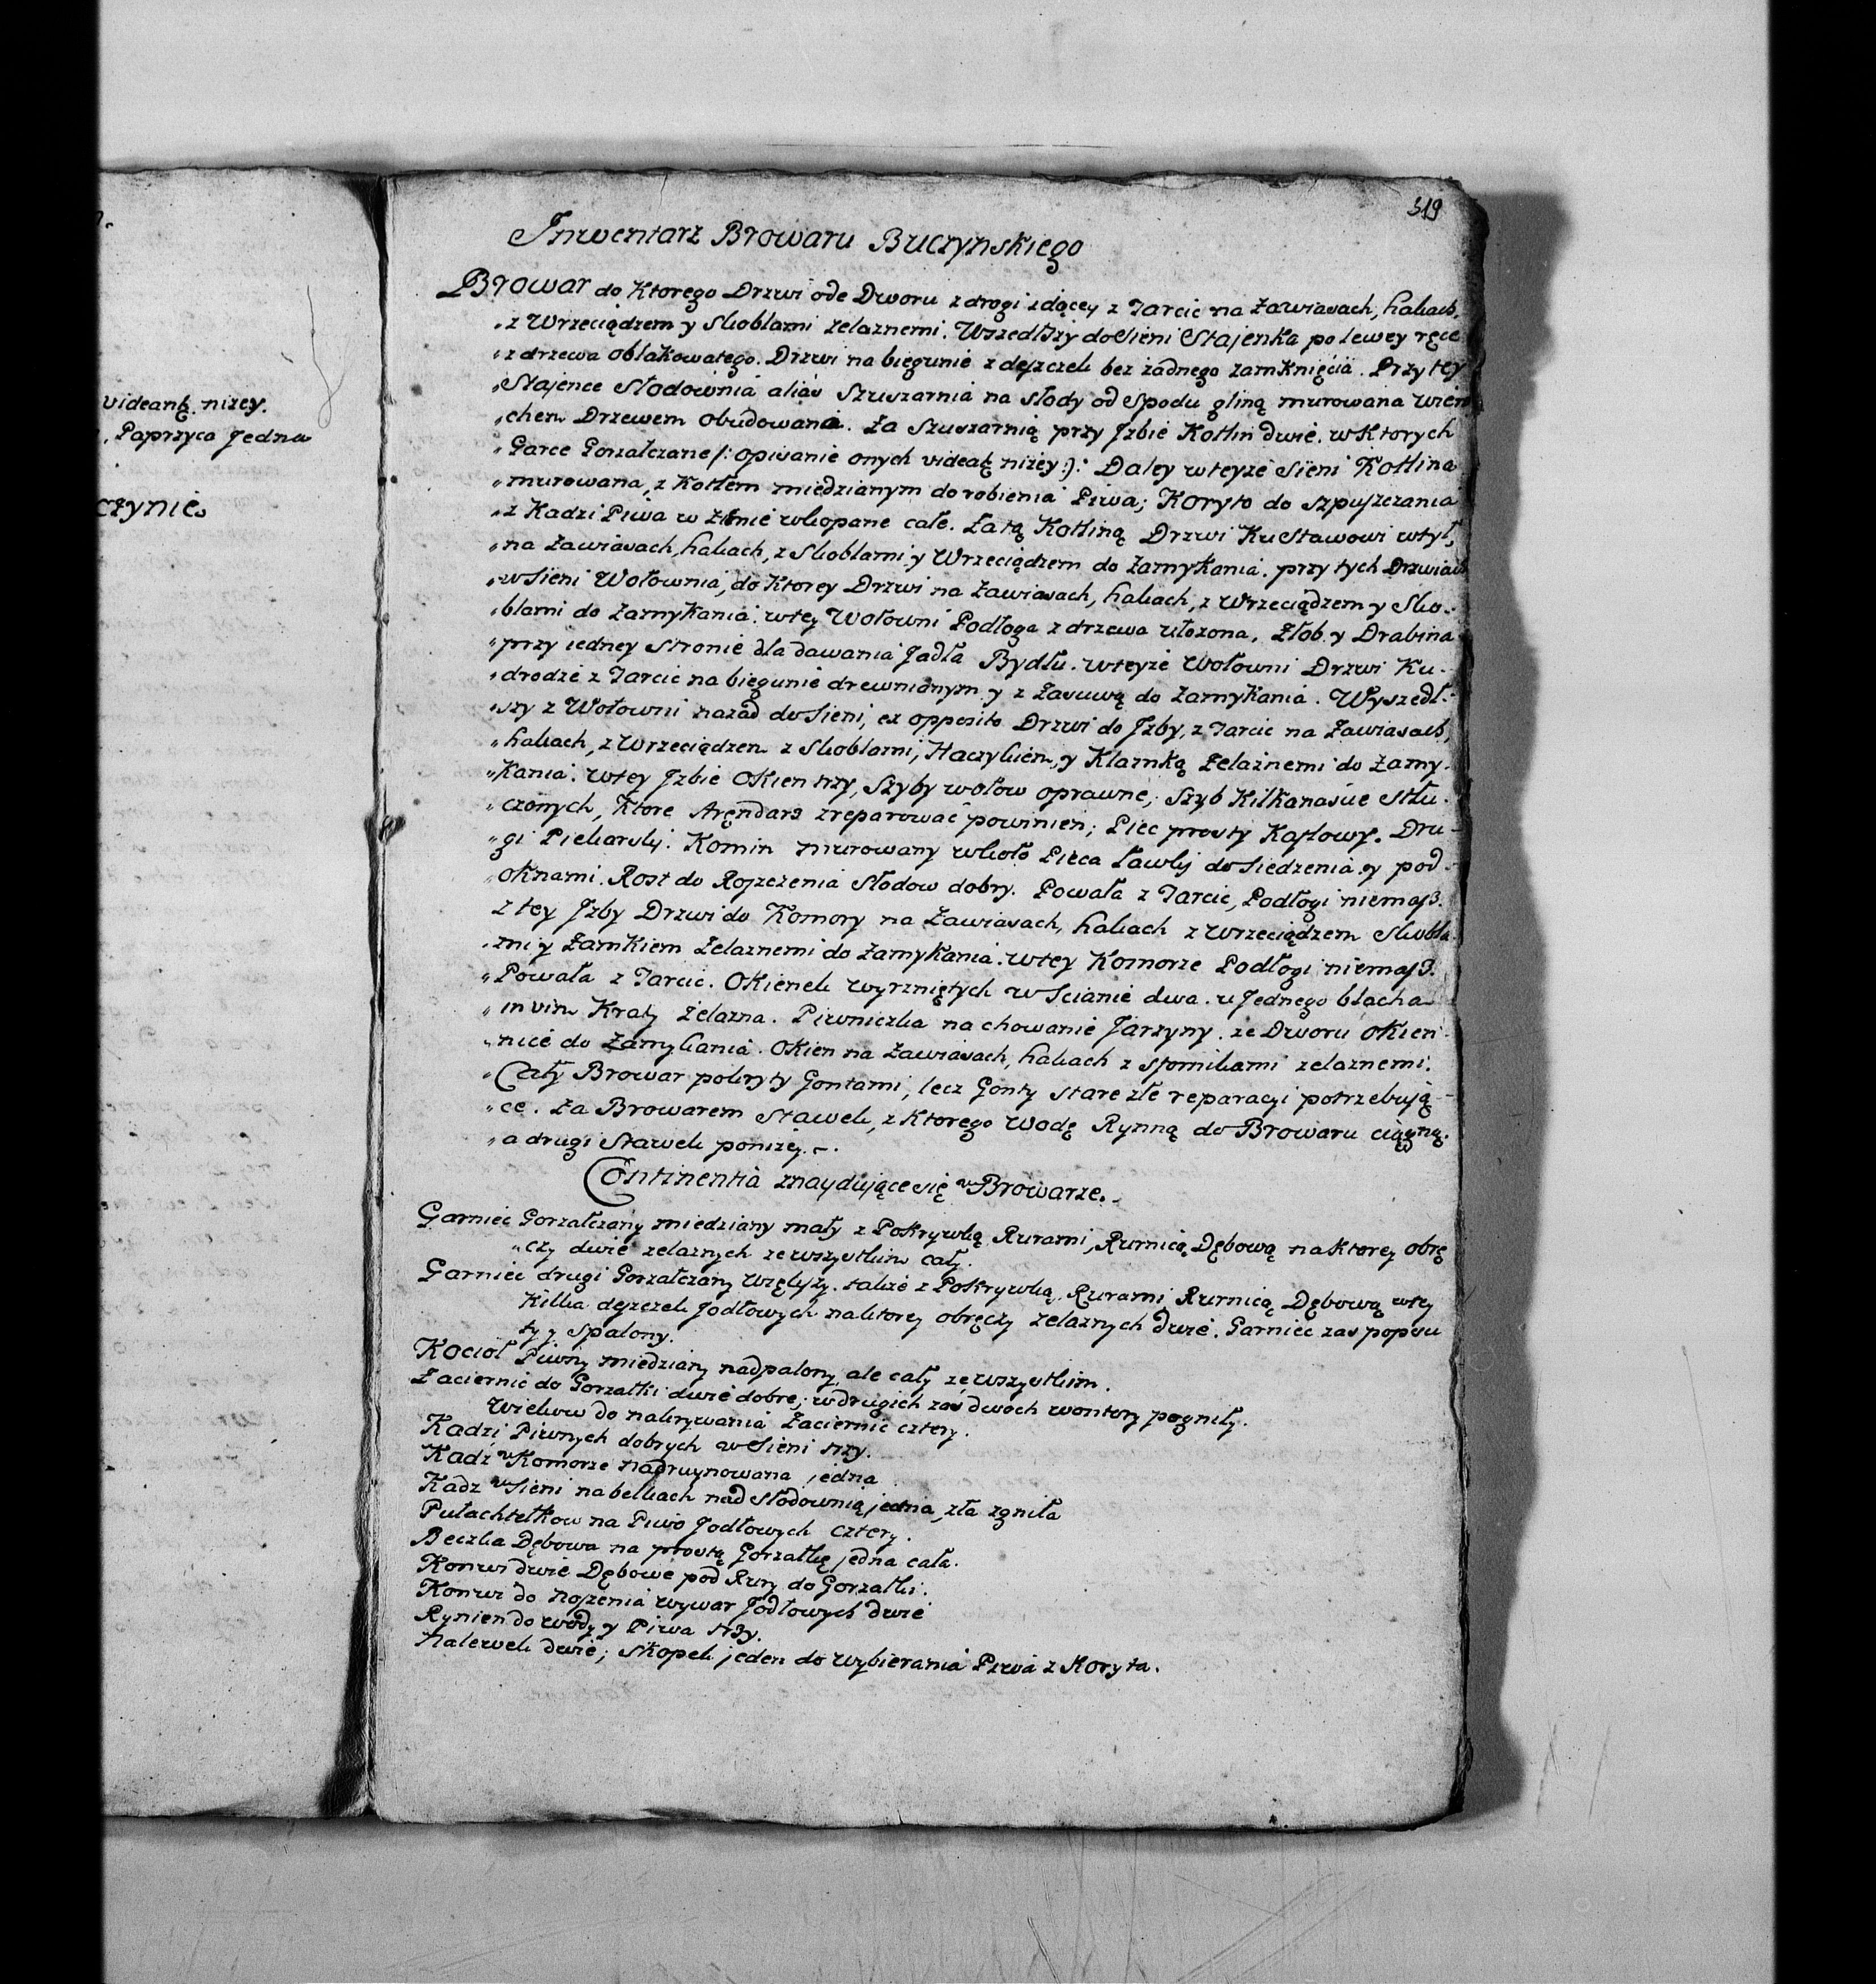 519
videantꝫ niżey.
Paprzyca Jedna
czynie
Inwentarz Browaru Buczynskiego
Browar do Ktorego Drzwi ode Dworu z drogi idącey z Tarcic na Zawiasach, hakach,
z Wrzeciądzem y Skoblami zelaznemi. Wszedłszy do Sieni Stajenka po lewey ręce
z drzewa obłakowatego. Drzwi na biegunie z deszczek bez żadnego zamknięcia. Przy tey
Stajence Słodownia alias Szuszarnia na słody od spodu gliną murowana wierz
chem Drzewem obudowana. Za Szuszarnią przy Izbie Kotlin dwie. w Ktorych
Garce Gorzałczane /: opisanie onych videatꝫ niżey :/: Daley w teyże Sieni Kotlina
murowana, z Kotłem miedzianym do robienia Piwa; Koryto do szpuszczania
z Kadzi Piwa w Ziemie wkopane całe. Za tą Kotliną Drzwi Ku Stawowi w tył,
na Zawiasach, hakach, z Skoblami y Wrzeciądzem do Zamykania. przy tych Drzwiach
w Sieni Wołownia, do Ktorey Drzwi na Zawiasach, hakach, z Wrzeciądzem y Sko-
blami do Zamykania. w tey Wołowni Podłoga z drzewa ułożona, Złob y Drabina
przy iedney stronie dla dawania Jadła Bydłu. w teyże Wołowni Drzwi Ku-
drodze z Tarcic na biegunie drewnianym y z Zasuwą do Zamykania. Wyszedł-
szy z Wołowni nazad do Sieni, ex opposito Drzwi do Izby, z Tarcic na Zawiasach,
hakach, z Wrzeciądzem z Skoblami, Haczykiem, y Klamką Zelaznemi do Zamy-
kania. w tey Izbie Okien trzy, Szyby w ołow oprawne, Szyb Kilkanaście stłu-
czonych, Ktore Arędarz zreparować powinien; Piec prosty Kaflowy. Dru-
gi Piekarski. Komin murowany wkoło Pieca Ławki do Siedzenia y pod
oknami. Rost do Roszczenia Słodow dobry. Powała z Tarcic, Podłogi niemasz.
Z tey Izby Drzwi do Komory na Zawiasach, hakach z Wrzeciądzem Skobla
mi y Zamkiem Zelaznemi do Zamykania. w tey Komorze Podłogi niemasz.
Powała z Tarcic. Okienek wyrzniętych w Scianie dwa. u Jednego blacha
in vim Kraty Zelazna. Piwniczka na chowanie Jarzyny. ze Dworu okien-
nice do Zamykania Okien na Zawiasach, hakach z Spomikami zelaznemi.
Cały Browar pokryty Gontami, lecz Gonty stare złe reparacyi potrzebują
ce. Za Browarem Stawek, z Ktorego Wodę Rynną do Browaru ciągną.
a drugi Stawek poniżey.
Continentia znaydujące się w Browarze.
Garniec Gorzałczany miedziany mały z Pokrywką Rurami, Rurnicą Dębową na Ktorey obrę
czy dwie zelaznych ze wszystkim cały.
Garniec drugi Gorzałczany większy. także z Pokrywką Rurami Rurnicą Dębową w tey
Kilka deszczek Jodłowych na ktorey obręczy zelaznych dwie. Garniec zas popsu
ty y spalony.
Kocioł Piwny miedziany nadpalony, ale cały ze wszystkim.
Zaciernic do Gorzałki dwie dobre; w drugich zaś dwoch wontory pogniły.
Wiekow do nakrywania Zaciernic cztery.
Kadzi Piwnych dobrych w Sieni trzy.
Kadź w Komorze nadruynowana jedna
Kadz w Sieni na belkach nad Słodownią jedna, zła zgniła
Pułachtelkow na Piwo Jodłowych cztery.
Beczka Dębowa na prostą Gorzałkę jedna cała.
Konwi dwie Dębowe pod Rury do Gorzałki.
Konwi do noszenia wywar Jodłowych dwie
Rynien do wody y Piwa trzy.
Nalewek dwie; Skopek jeden do wybierania Piwa z Koryta.